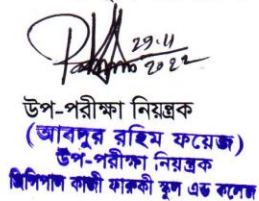 29.11
2022
উপ-পরীক্ষা নিয়ন্ত্রক
(আবদুর রহিম ফয়েজ)
উপ-পরীক্ষা নিয়ন্ত্রক
প্রিন্সিপাল কাজী ফারুকী স্কুল এন্ড কলেজ